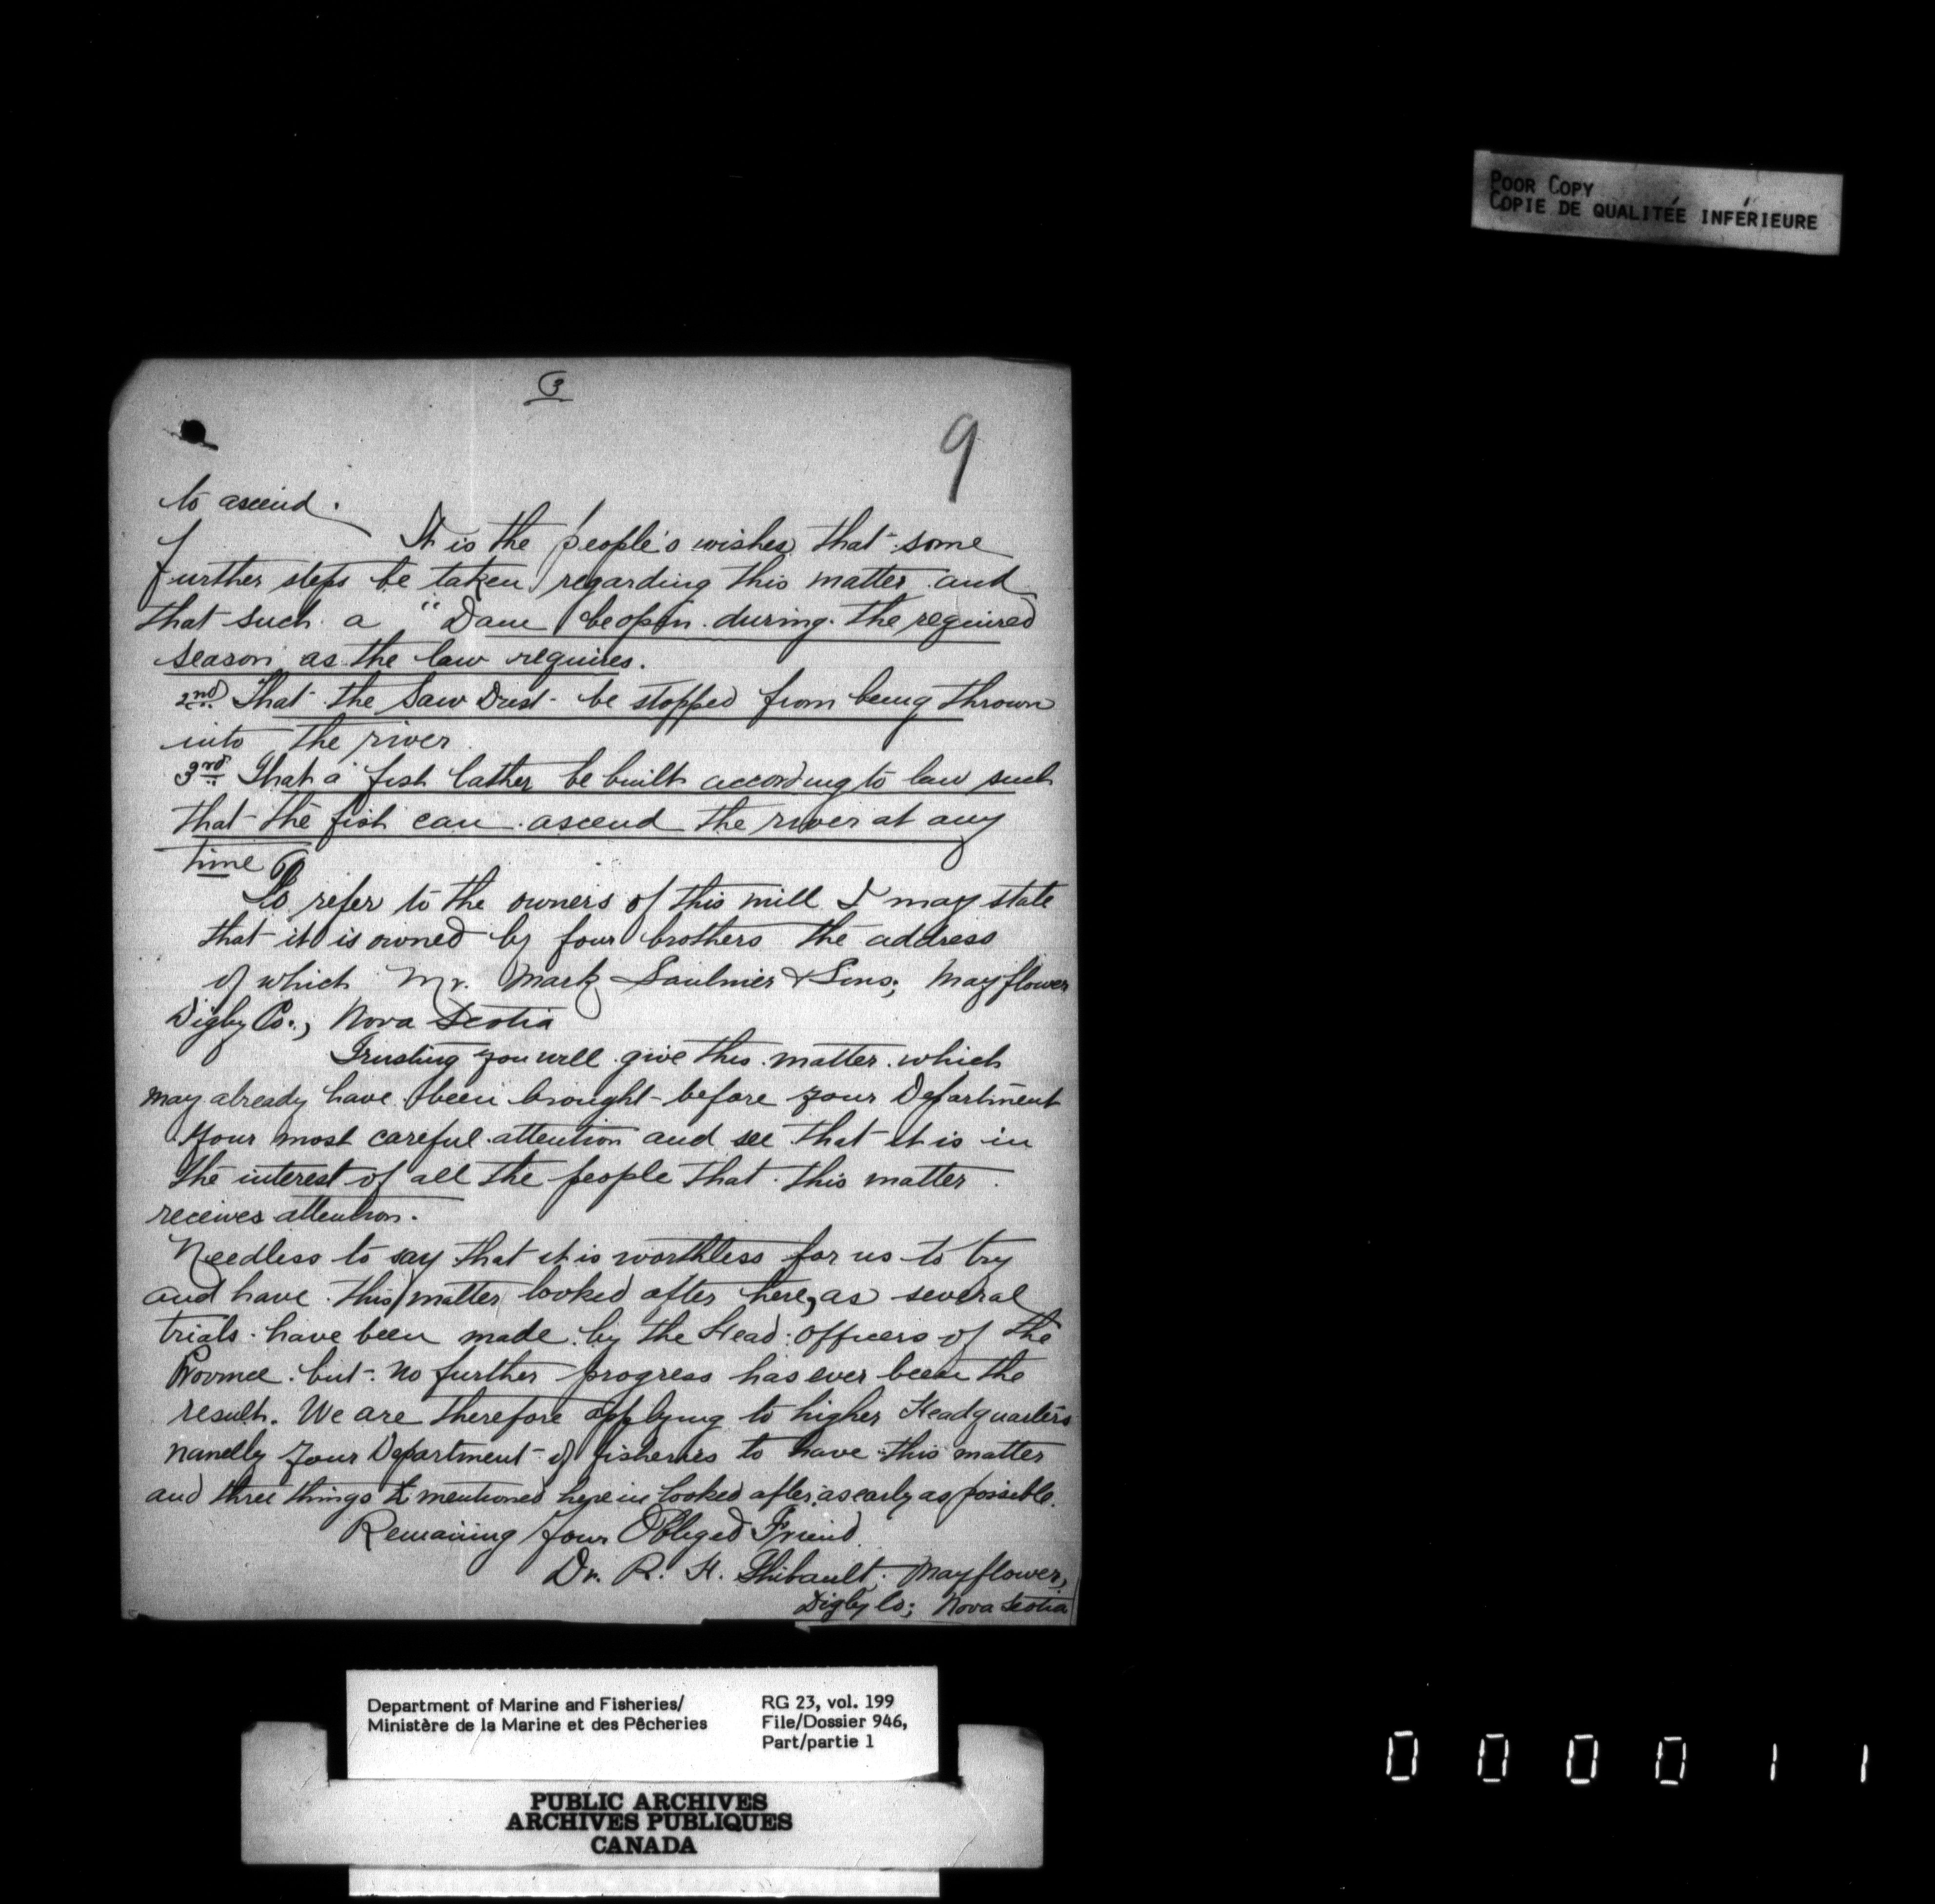 POOR COPY
COPIE DE QUALITÉE INFÉRIEURE
3
9
to ascend.
It is the people's wishes that some
further steps be taken regarding this matter and
that such a "Dam be open during the required
season as the law requires.
2nd That the Saw Dust be stopped from being thrown
into the river
3rd That a fish lather be built according to law such
that the fish can ascend the river at any
time
To refer to the owners of this mill I may state
that it is owned by four brothers the address
of which Mr. Mark Saulnier & Sons; Mayflower
Digby Co., Nova Scotia
Trusting you will give this matter which
may already have been brought before your Department
your most careful attention and see that it is in
the interest of all the people that this matter
receives attention.
Needless to say that it is worthless for us to try
and have this matter looked after here, as several
trials have been made by the Head officers of the
Province but no further progress has ever been the
result. We are therefore applying to higher Headquarters
namelly your Department of fisheries to have this matter
and three things mentioned herein looked after as early as possible.
Remaining Your Obliged Friend
Dr. R. H. Thibault. Mayflower,
Digby Co; Nova Scotia
Department of Marine and Fisheries/
Ministère de la Marine et des Pêcheries
RG 23, vol. 199
File/Dossier 946,
Part/partie 1
PUBLIC ARCHIVES
ARCHIVES PUBLIQUES
CANADA
0 0 0 0 1 1